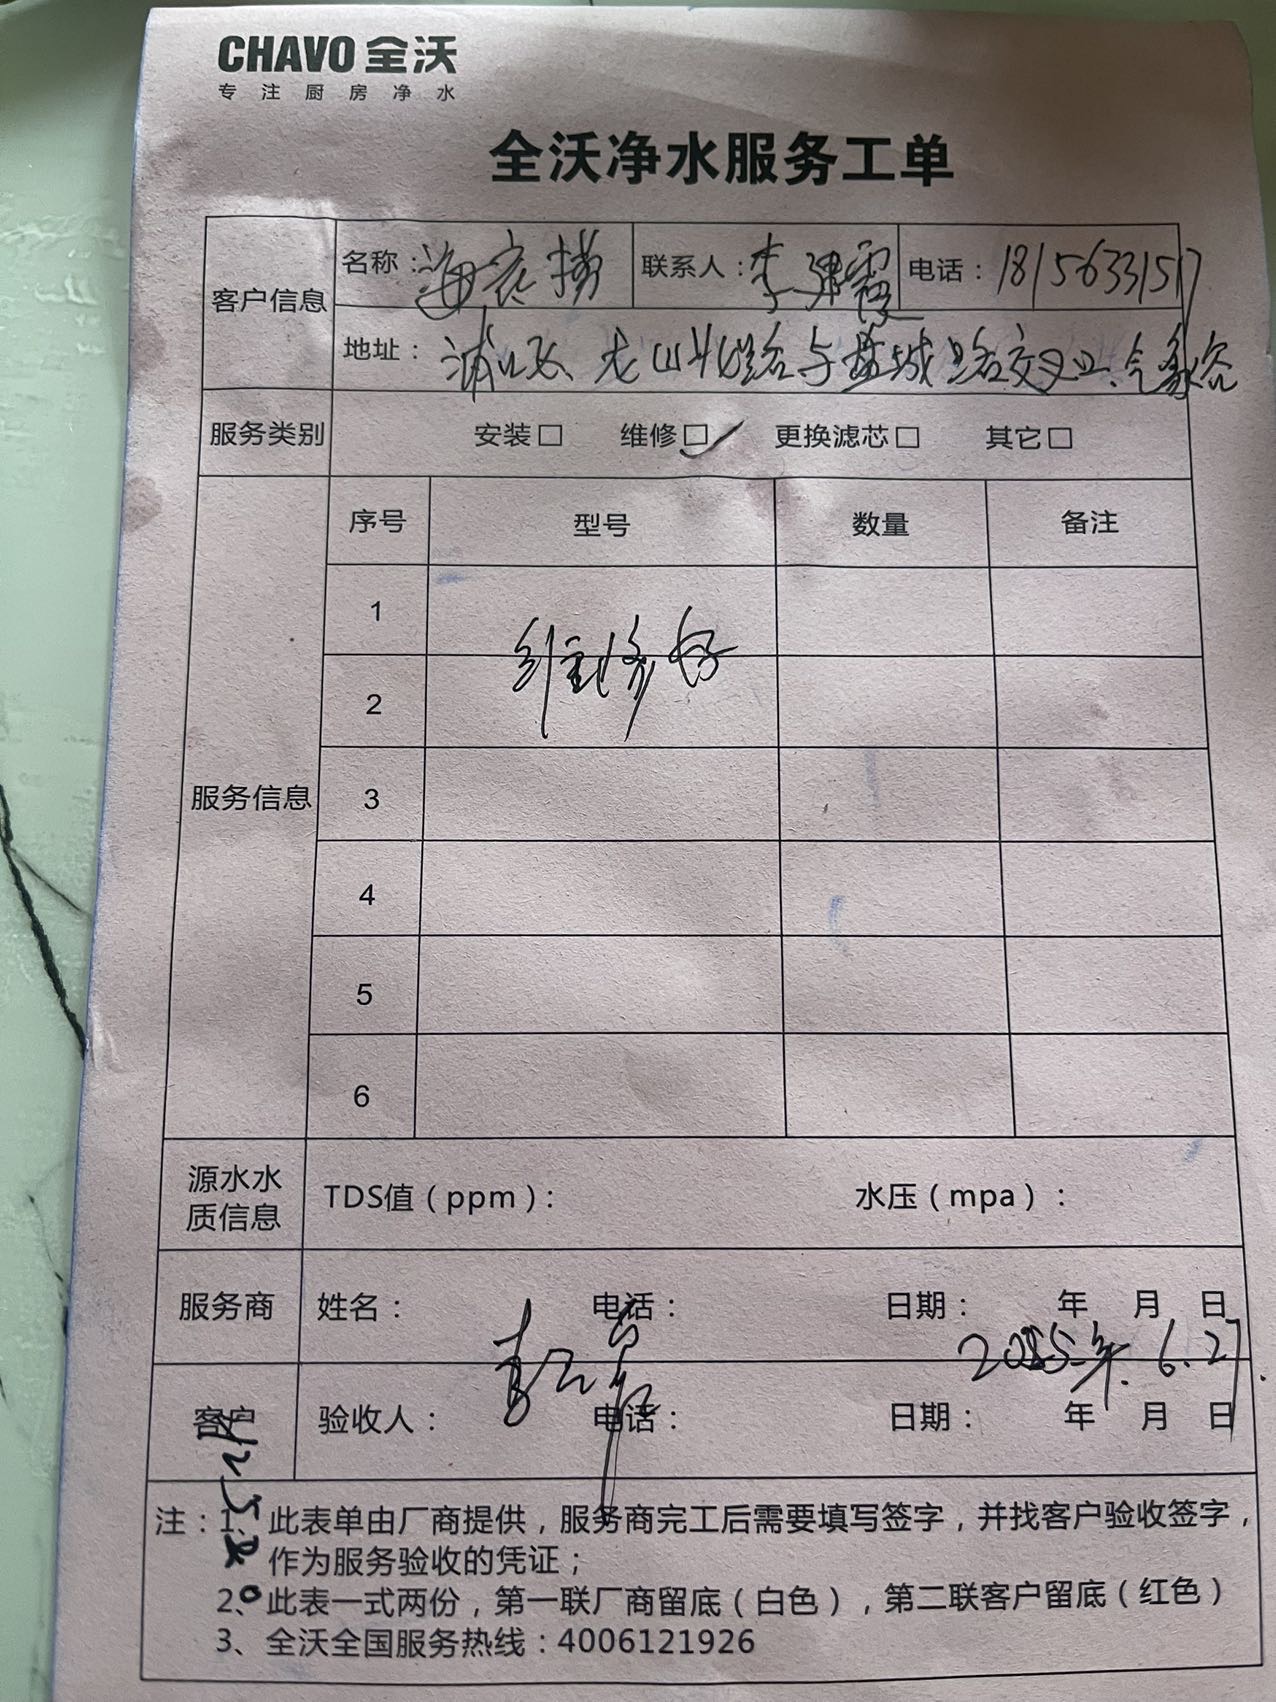 CHAVO 全沃
专注厨房净水
全沃净水服务工单
客户信息
名称：海底捞 联系人：李 霞 电话：18156331517
地址：浦口区 龙山北路与盐城路交叉口
服务类别 安装□ 维修□✓ 更换滤芯□ 其它□
服务信息
序号 型号 数量 备注
1
维修好
2
3
4
5
6
源水水质信息 TDS值（ppm）： 水压（mpa）：
服务商 姓名： 电话： 日期： 年 月 日
2025年.6.27.
客户 验收人： 电话： 日期： 年 月 日
注：1、此表单由厂商提供，服务商完工后需要填写签字，并找客户验收签字，
作为服务验收的凭证；
2、此表一式两份，第一联厂商留底（白色），第二联客户留底（红色）
3、全沃全国服务热线：4006121926